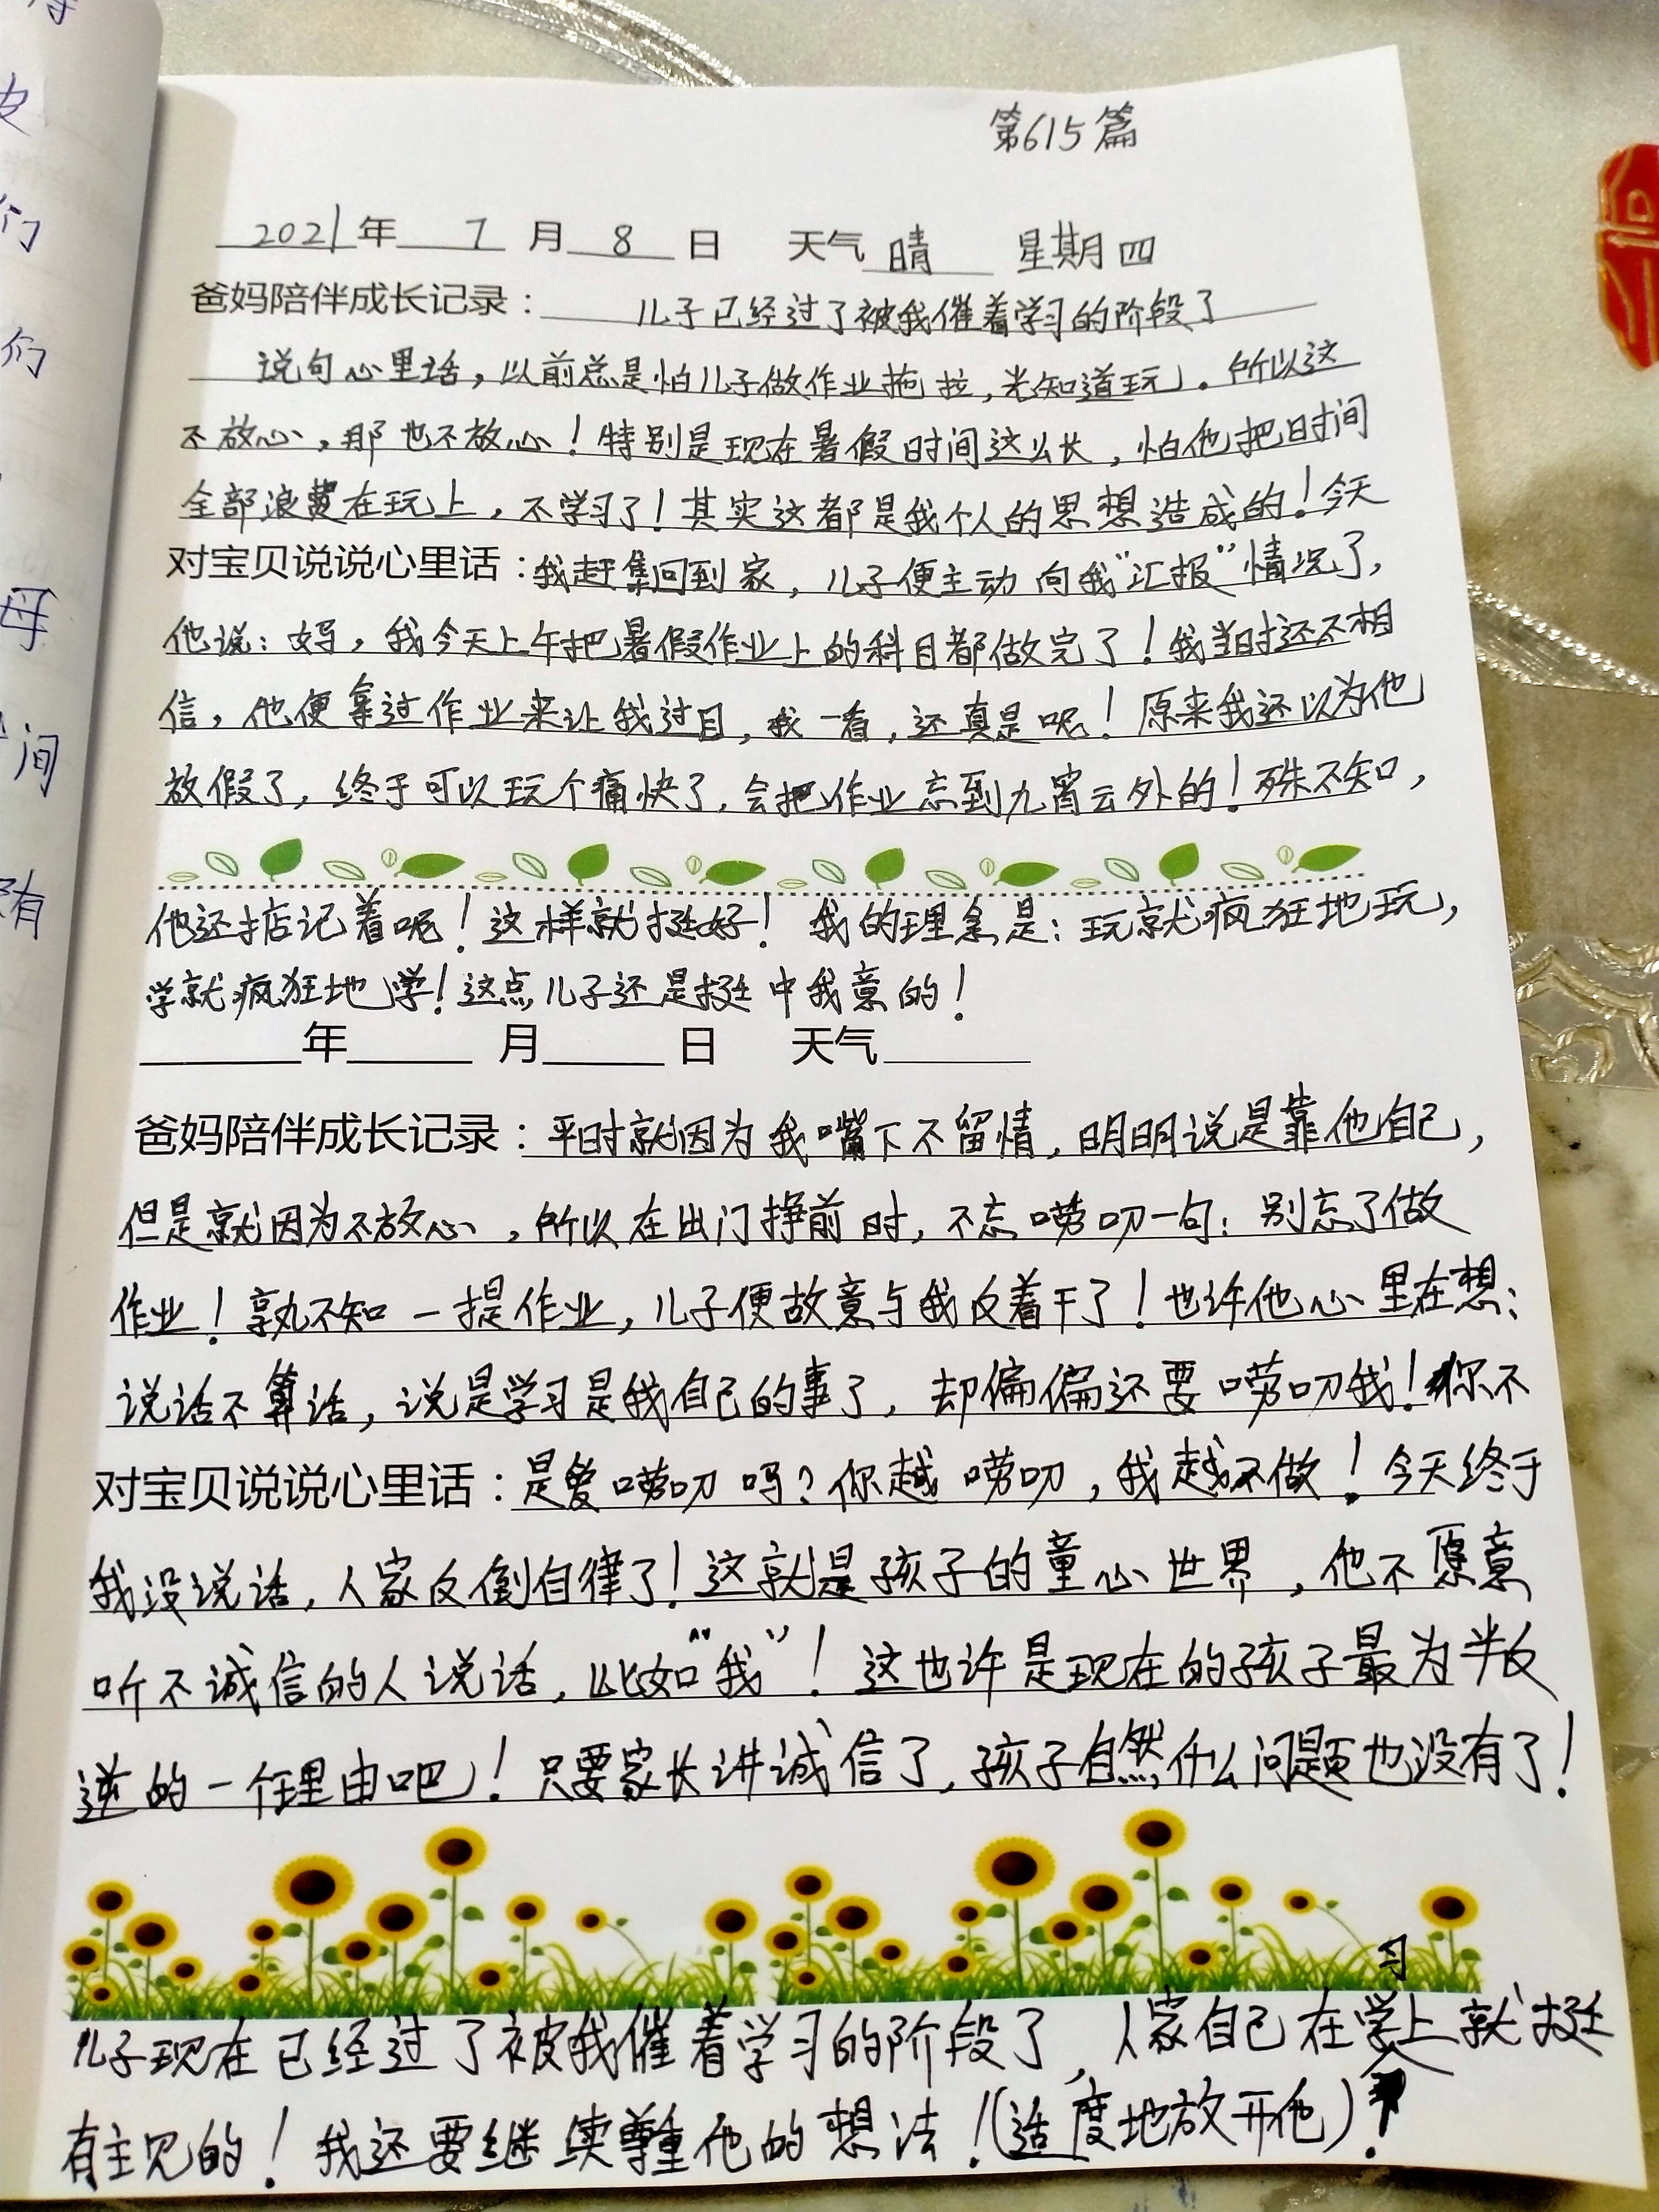 第615篇
2021年 7 月 8 日 天气 晴 星期四
爸妈陪伴成长记录: 儿子已经过了被我催着学习的阶段了
说句心里话,以前总是怕儿子做作业拖拉,光知道玩。所以这
不放心,那也不放心!特别是现在暑假时间这么长,怕他把时间
全部浪费在玩上,不学习了!其实这都是我个人的思想造成的!今天
对宝贝说说心里话:我赶集回到家,儿子便主动向我“汇报”情况了,
他说:妈,我今天上午把暑假作业上的科目都做完了!我当时还不相
信,他便拿过作业来让我过目,我一看,还真是呢!原来我还以为他
放假了,终于可以玩个痛快了,会把作业忘到九霄云外的!殊不知,
他还惦记着呢!这样就挺好!我的理念是:玩就疯狂地玩,
学就疯狂地学!这点儿子还是挺中我意的!
年 月 日 天气
爸妈陪伴成长记录:平时就因为我嘴下不留情,明明说是靠他自己,
但是就因为不放心,所以在出门挣前时,不忘唠叨一句:别忘了做
作业!孰不知一提作业,儿子便故意与我反着干了!也许他心里在想:
说话不算话,说是学习是我自己的事了,却偏偏还要唠叨我!你不
对宝贝说说心里话:是爱唠叨吗?你越唠叨,我越不做!今天终于
我没说话,人家反倒自律了!这就是孩子的童心世界,他不愿意
听不诚信的人说话,比如“我”!这也许是现在的孩子最为半反
逆的一个理由吧!只要家长讲诚信了,孩子自然什么问题也没有了!
儿子现在已经过了被我催着学习的阶段了,人家自己在学习上就挺
有主见的!我还要继续尊重他的想法!(适度地放开他)!
母
们
们
间
有